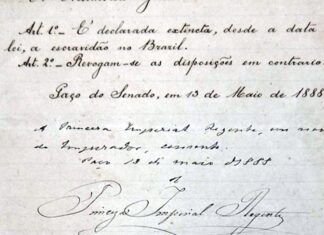 Art. 1º - É declarada extincta, desde a data
lei, a escravidão no Brazil.
Art. 2º - Revogam-se as disposições em contrario.
Paço do Senado, em 13 de Maio de 1888
A Princeza Imperial Regente, em nom
do Imperador, consente.
Paço 13 de maio de 1888
Imperial Regente